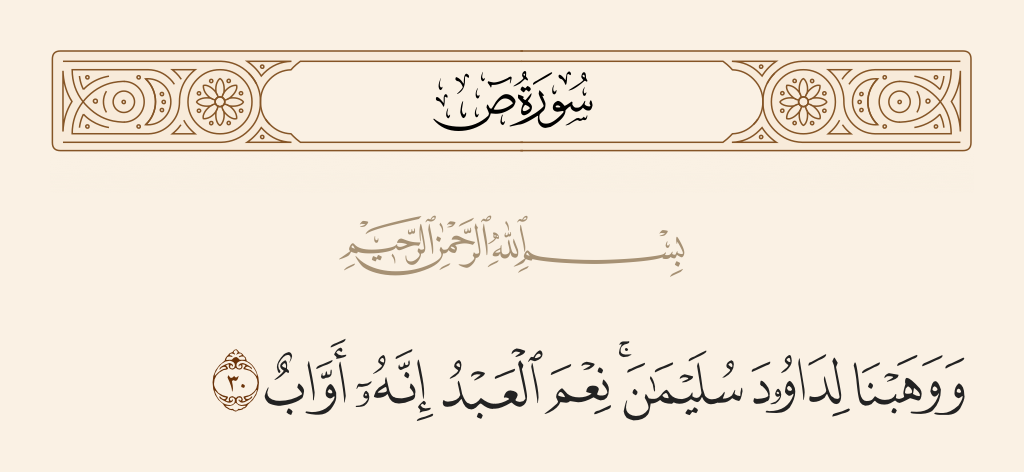 سُورَةُ صٓ
بِسْمِ ٱللَّهِ ٱلرَّحْمَٰنِ ٱلرَّحِيمِ
وَوَهَبْنَا لِدَاوُۥدَ سُلَيْمَٰنَۚ نِعْمَ ٱلْعَبْدُ إِنَّهُۥٓ أَوَّابٌ ٣٠